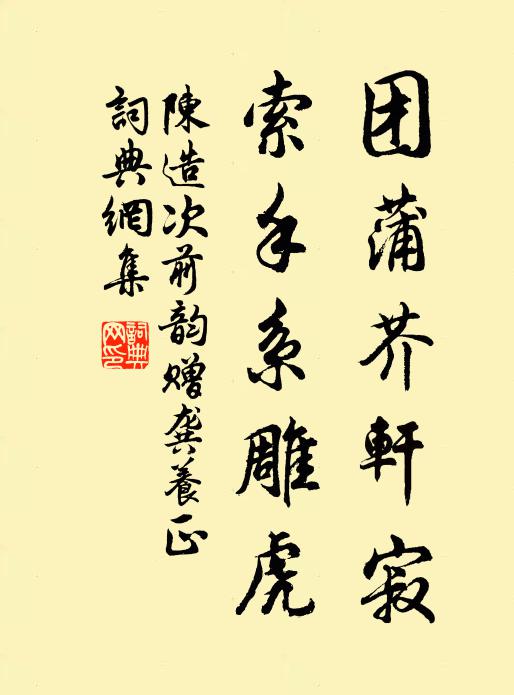 团蒲芥軒寂
索手系雕虎
陳造次前韵贈龔養正
詞典網集
詞典網印